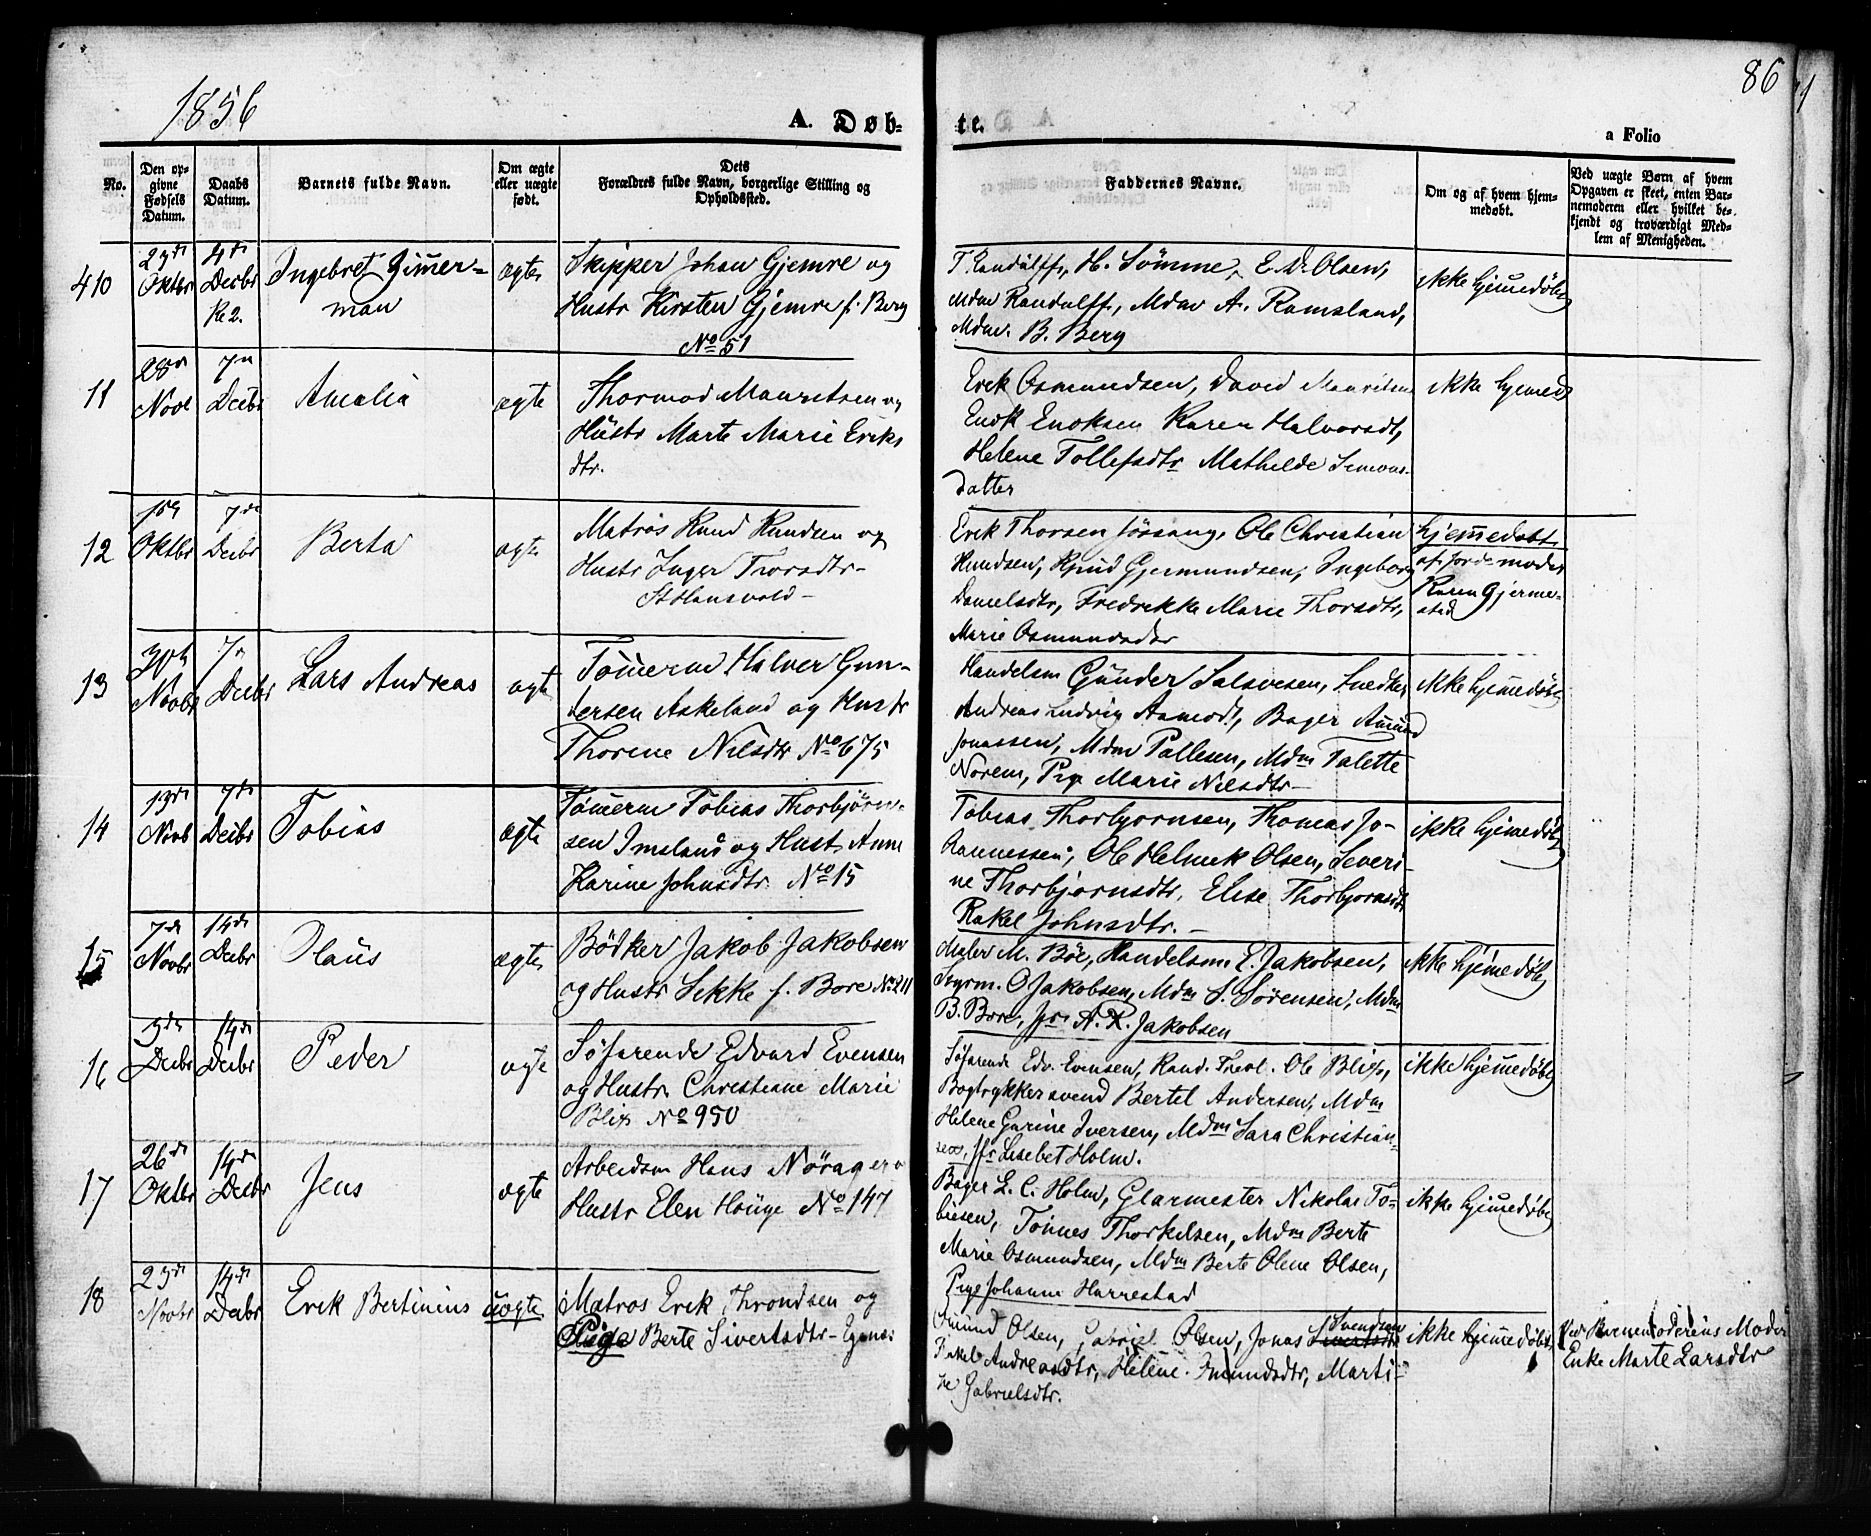 1856
A. Døb-
te.
86
a Folio
No.
Den op-
givne
Fødsels
Datum.
Daabs
Datum.
Barnets fulde Navn.
Om ægte
eller uægte
født.
Dets
Forældres fulde Navn, borgerlige Stilling og
Opholdssted.
Faddernes Navne.
Om og af hvem hjem-
medøbt.
Ved uægte Børn af hvem
Opgaven er skeet, enten Bar-
nemoderen eller hvilket be-
kjendt og troværdigt Med-
lem af Menigheden.
410
23de
Oktbr
4de
Decbr
Kl 2.
Ingebret Zimmer-
man
ægte
Skipper Johan Gjemre og
Hustr Kirsten Gjemre f. Berg
No 51
T. Randulff, H. Sömme, E. D. Olsen,
Mdm Randulff, Mdm A. Ramsland,
Mdm. B. Berg
ikke hjemmedøbt
11
28de
Novb
7de
Decbr
Amalia
ægte
Thormod Mauritsen og
Hustr Marte Marie Eriks
dtr.
Erik Osmundsen, David Mauritsen
Enok Enoksen Karen Halvorsdt,
Helene Tollefsdtr Mathilde Simons-
datter
ikke hjemmed
12
Oktbr
7de
Decbr
Berta
ægte
Matros Knud Knudsen og
Hustr Inger Thorsdtr-
St Hansvold-
Erik Thorsen Jössang, Ole Christian
Knudsen, Knud Gjermundsen, Ingeborg
Danielsdtr, Fredrikke Marie Thorsdtr,
Marie Osmundsdtr
hjemmedøbt
af Jordemoder
Karen Gjerme-
stad
13
30te
Novbr
7de
Decbr
Lars Andreas
ægte
Tömmerm Halvor Gun-
dersen Askeland og Hustr
Thorine Nilsdtr No 675
Handelsm Gunder Salvesen, Snedker
Andreas Ludvig Aamodt, Bager Amund
Jonassen, Mdm Pallesen, Mdm Talette
Norem, Pige Marie Nilsdtr-
ikke hjemmedøbt
14
13de
Novb
7de
Decbr
Tobias
ægte
Tömmerm Tobias Thorbjörn-
sen Imsland og Hustr Anne
Karine Johnsdtr. No 15
Tobias Thorbjornsen, Thomas Jo-
hannessen, Ole Helmik Olsen, Severi-
ne Thorbjornsdtr, Elise Thorbjornsdtr
Rakel Johnsdtr.-
ikke hjemmedøbt
15
7de
Novbr
14de
Decbr
Claus
ægte
Bödker Jakob Jakobsen
og Hustr Sekke f. Bore No 211
Maler M. Böe, Handelsm. E. Jakobsen,
Styrm. O Jakobsen, Mdm S. Sörensen, Mdm
B. Bore, Jfr A. K. Jakobsen
ikke hjemmedøbt
16
3de
Decbr
14de
Decbr
Peder
ægte
Söfarende Edvard Evensen
og Hustr Christiane Marie
Blix No 950
Söfarende Edv. Evensen, Kand. Theol. Ole Blix,
Bogtrykkersvend Bertel Andersen, Mdm
Helene Gurine Iversen, Mdm Sara Christian-
sen, Jfr Lisebet Holm.
ikke hjemmedøbt
17
26de
Oktbr
14de
Decbr
Jens
ægte
Arbeidsm Hans Nörager og
Hustr Elen Houge No 147
Bager L. C. Holm, Glarmester Nikolai To-
biesen, Tönnes Thorkelsen, Mdm Berte
Marie Osmundsen, Mdm Berte Olene Olsen,
Pige Johanne Harrestad
ikke hjemmedøbt
18
23de
Novbr
14de
Decbr
Erik Bertinius
uægte
Matros Erik Throndsen og
Pige Berte Sivertsdtr-
Omund Olsen, Gabriel Olsen, Jonas Svendsen
Rakel Andreasdtr, Helene Omundsdtr, Marti-
ne Gabrielsdtr.
ikke hjemmedøbt
ved Barnemoderens Moder
Enke Marte Larsdtr